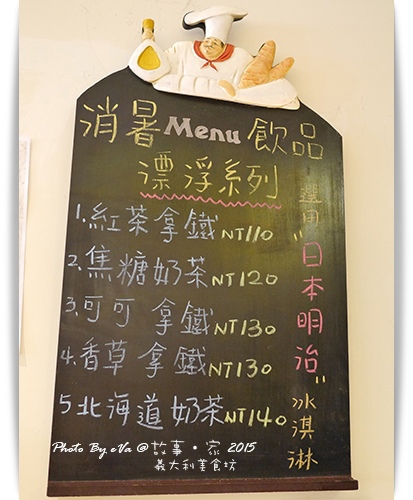 消暑 Menu 飲品
漂浮系列
1.紅茶拿鐵 NT110
2.焦糖奶茶 NT120
3.可可拿鐵 NT130
4.香草拿鐵 NT130
5.北海道奶茶 NT140
選用"日本明治"冰淇淋
Photo By eVa @ 故事‧家 2015
義大利美食坊